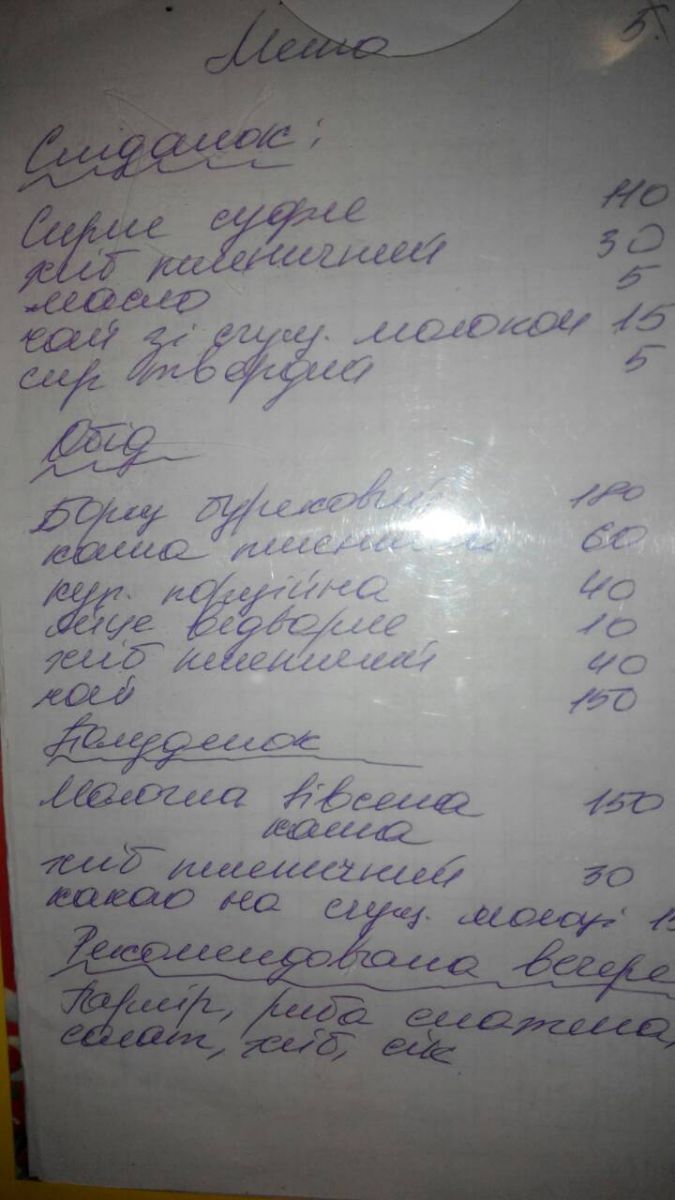 Меню 5.
Сніданок:
Сирне суфле 110
хліб пшеничний 30
масло 5
чай зі згущ. молоком 15
сир твердий 5
Обід
Борщ буряковий 180
каша пшенична 60
кур. порційна 40
яйце відварне 10
хліб пшеничний 40
чай 150
Полуденок
Молочна вівсяна 150
каша
хліб пшеничний 30
какао на згущ. молоці 15
Рекомендована вечеря
Гарнір, риба смажена,
салат, хліб, сік